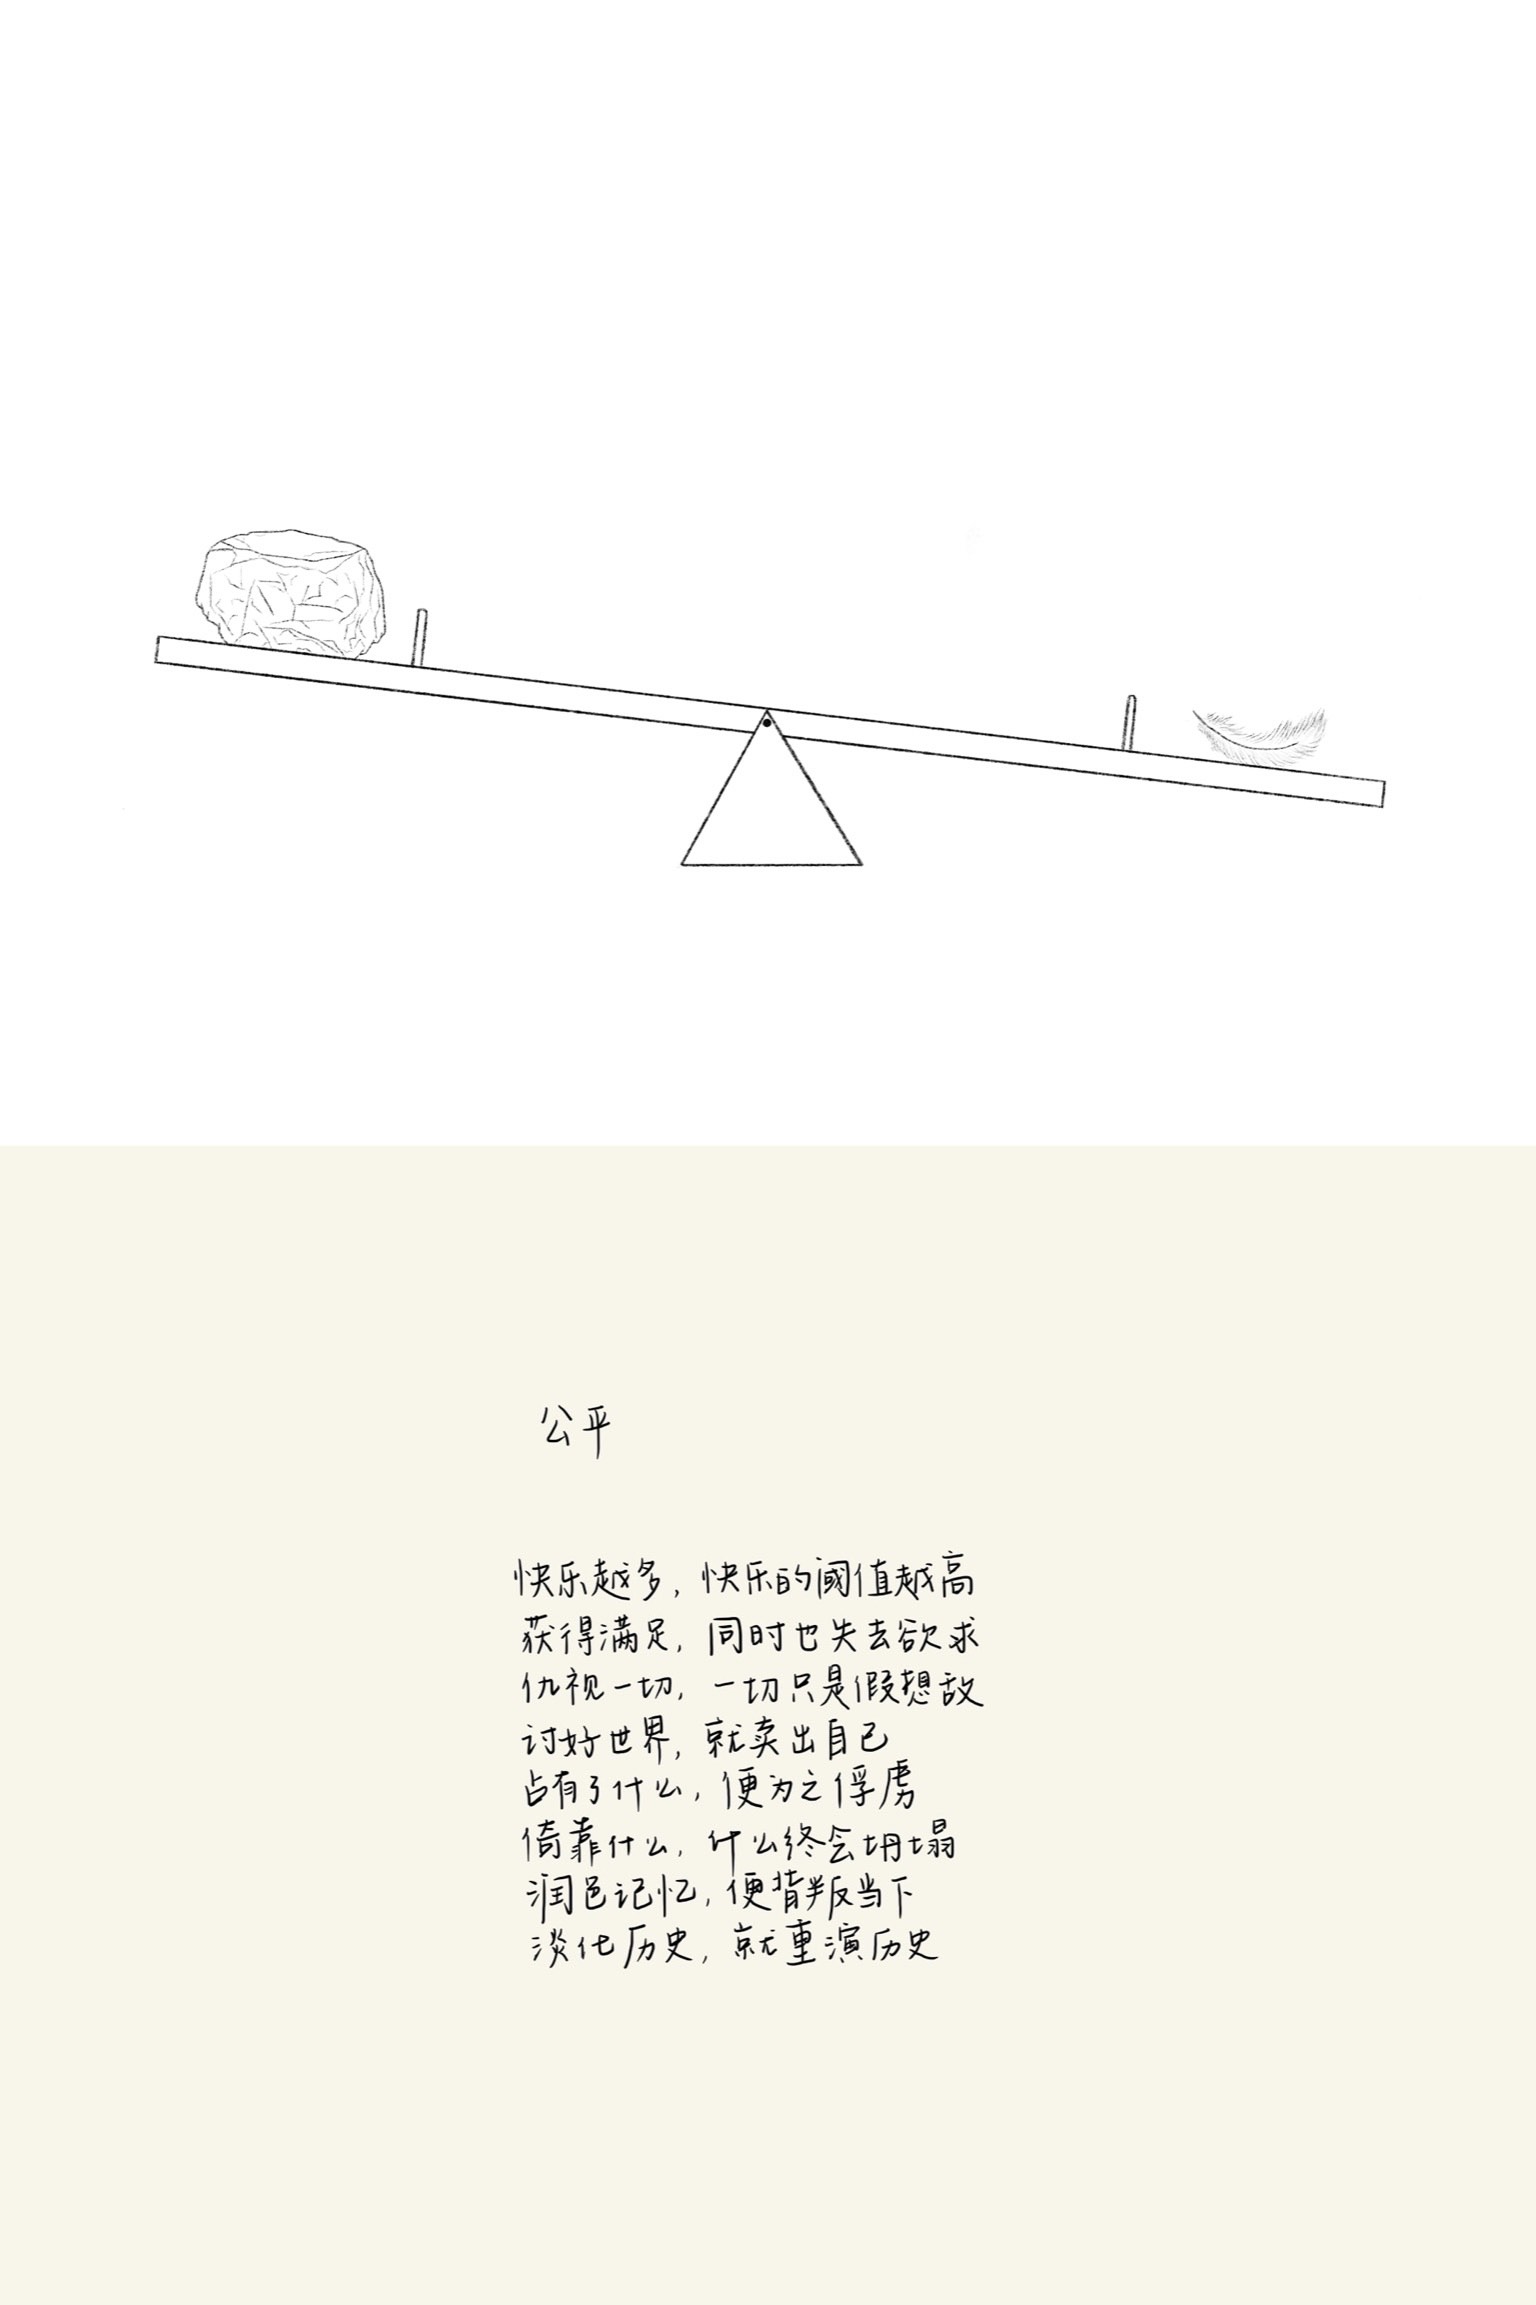 公平
快乐越多，快乐的阈值越高
获得满足，同时也失去欲求
仇视一切，一切只是假想敌
讨好世界，就卖出自己
占有了什么，便为之俘虏
倚靠什么，什么终会坍塌
润色记忆，便背叛当下
淡化历史，就重演历史